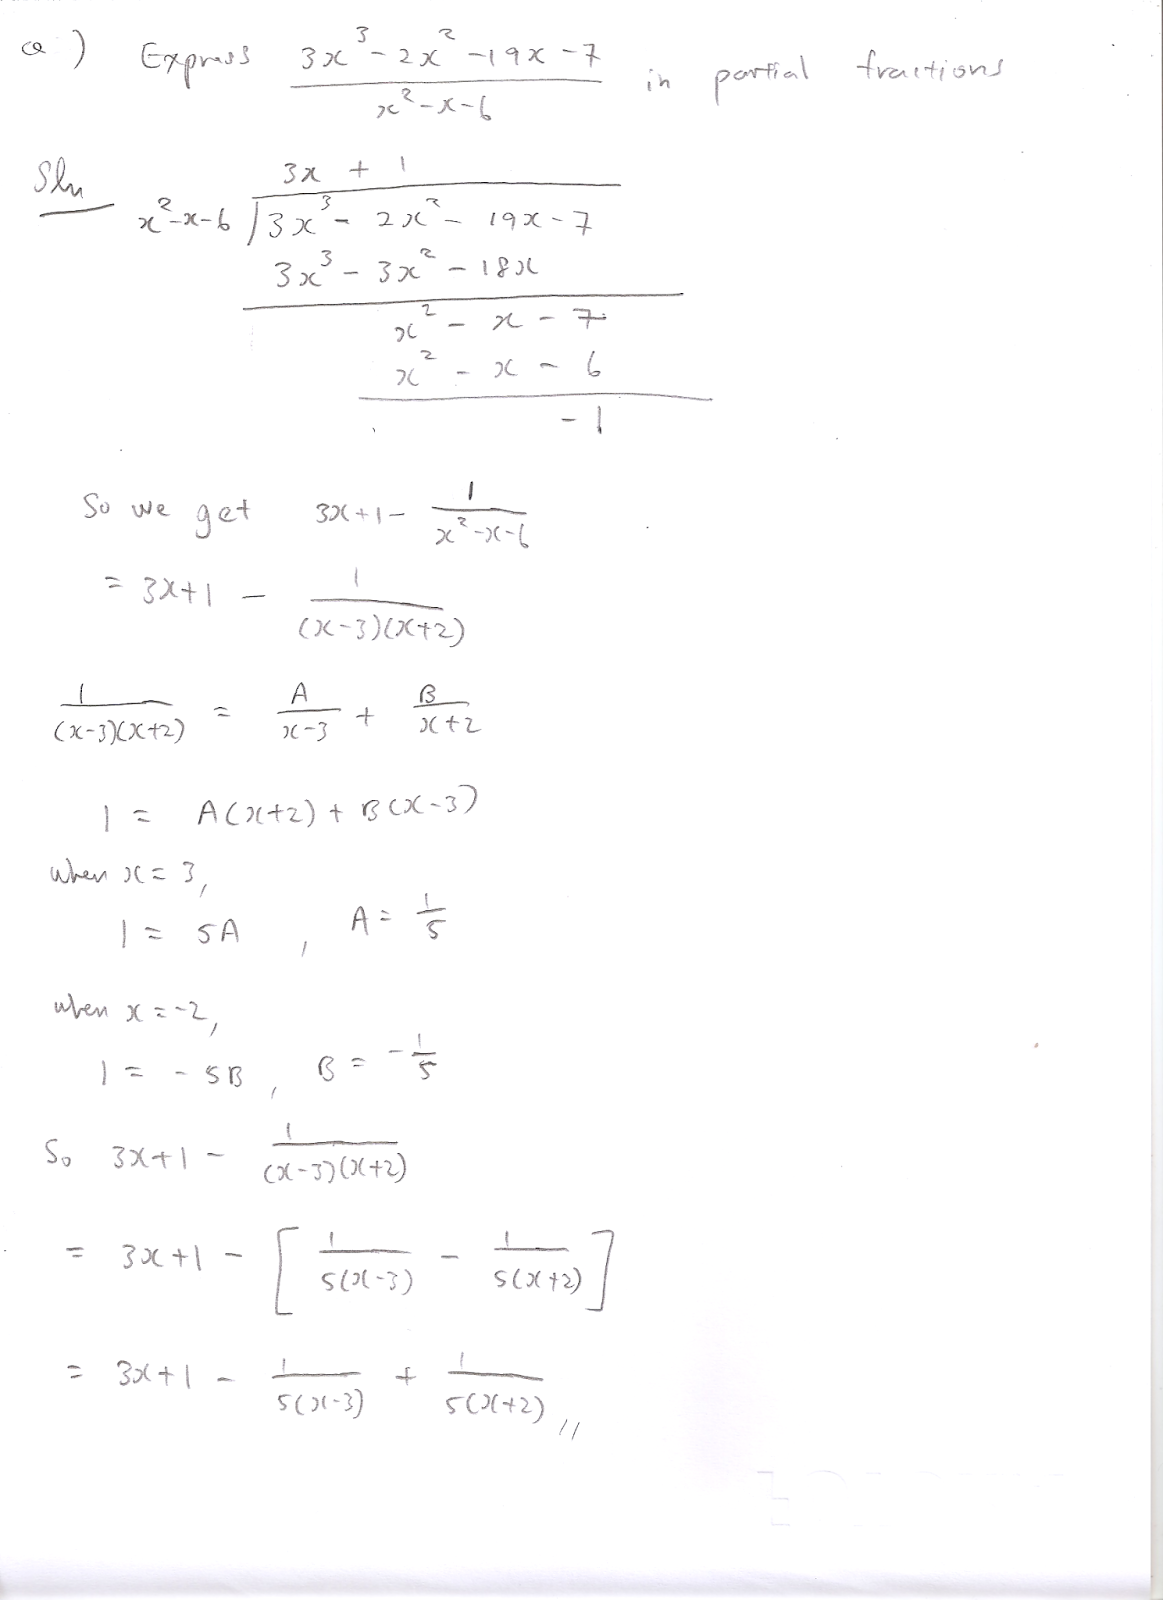 Q) Express (3x³ - 2x² - 19x - 7)/(x² - x - 6) in partial fractions
Sln
3x + 1
x² - x - 6 ) 3x³ - 2x² - 19x - 7
3x³ - 3x² - 18x
x² - x - 7
x² - x - 6
- 1
So we get 3x + 1 - 1/(x² - x - 6)
= 3x + 1 - 1/((x-3)(x+2))
1/((x-3)(x+2)) = A/(x-3) + B/(x+2)
1 = A(x+2) + B(x-3)
when x = 3,
1 = 5A , A = 1/5
when x = -2,
1 = -5B , B = -1/5
So 3x + 1 - 1/((x-3)(x+2))
= 3x + 1 - [ 1/(5(x-3)) - 1/(5(x+2)) ]
= 3x + 1 - 1/(5(x-3)) + 1/(5(x+2)) //